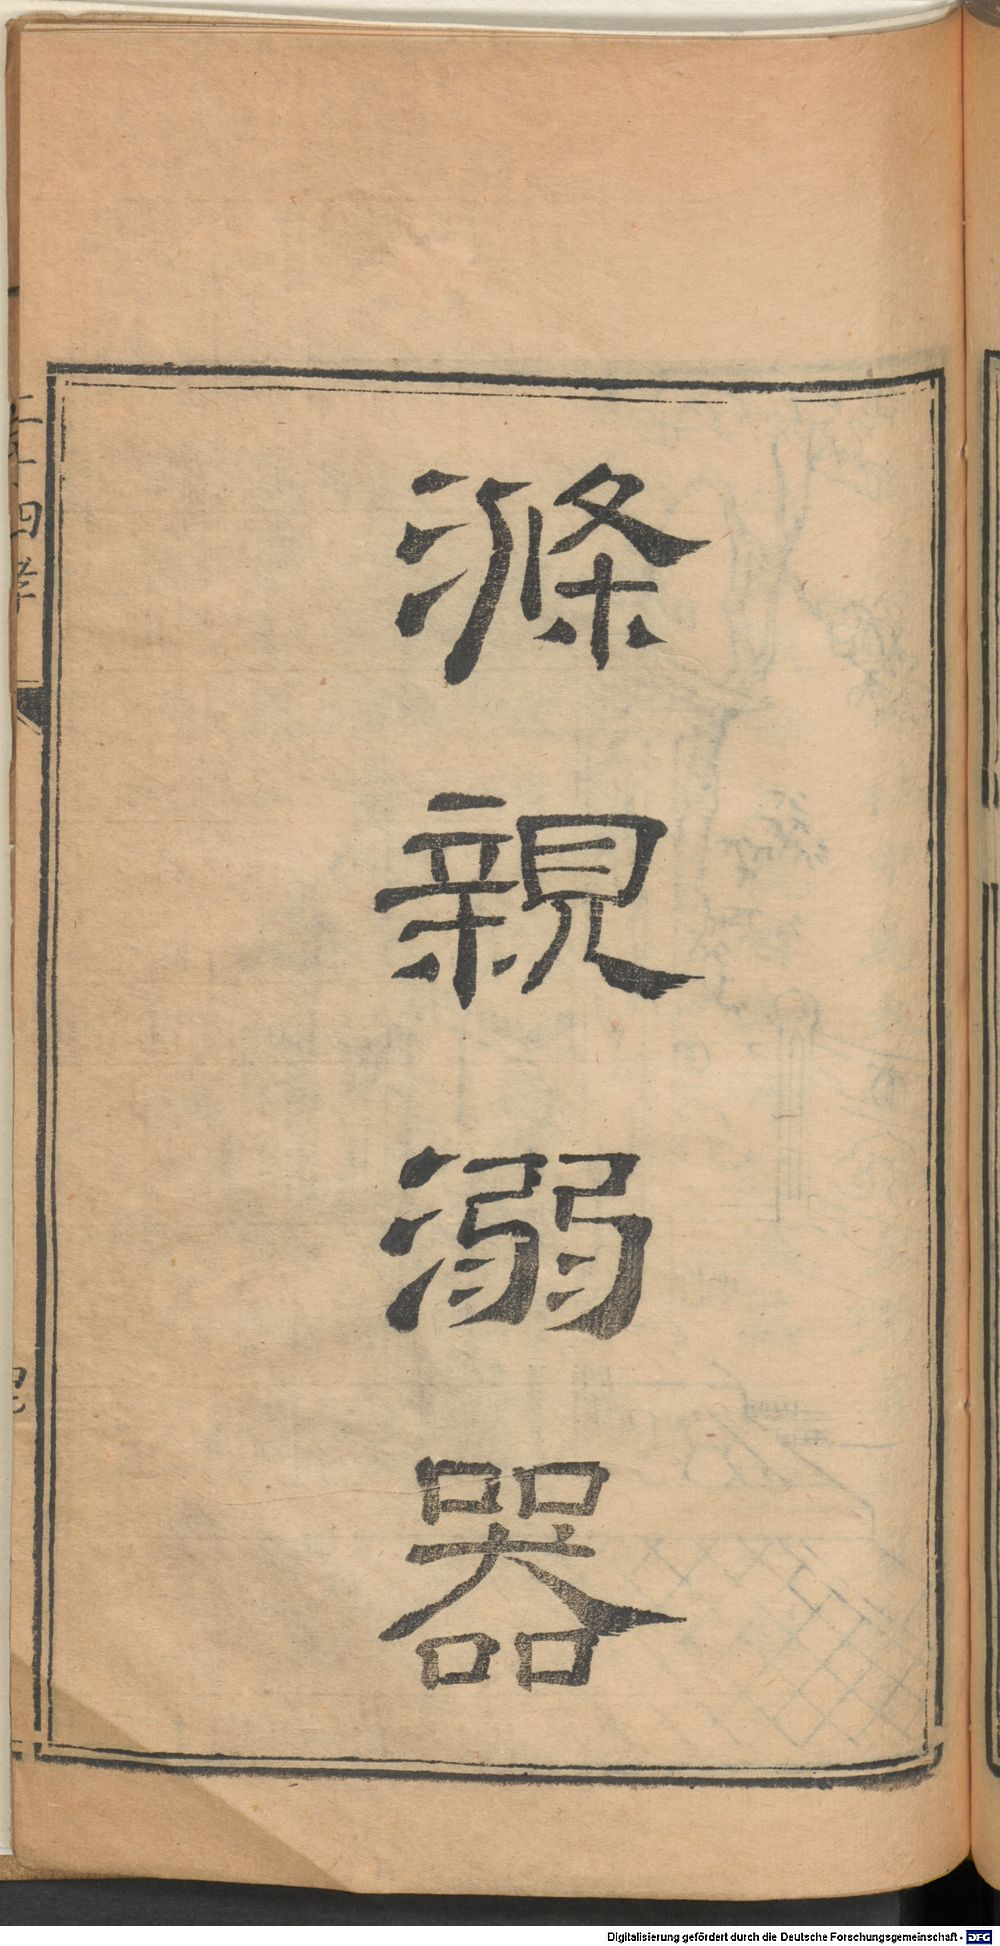 滌親溺器
二十四孝
Digitalisierung gefördert durch die Deutsche Forschungsgemeinschaft - DFG